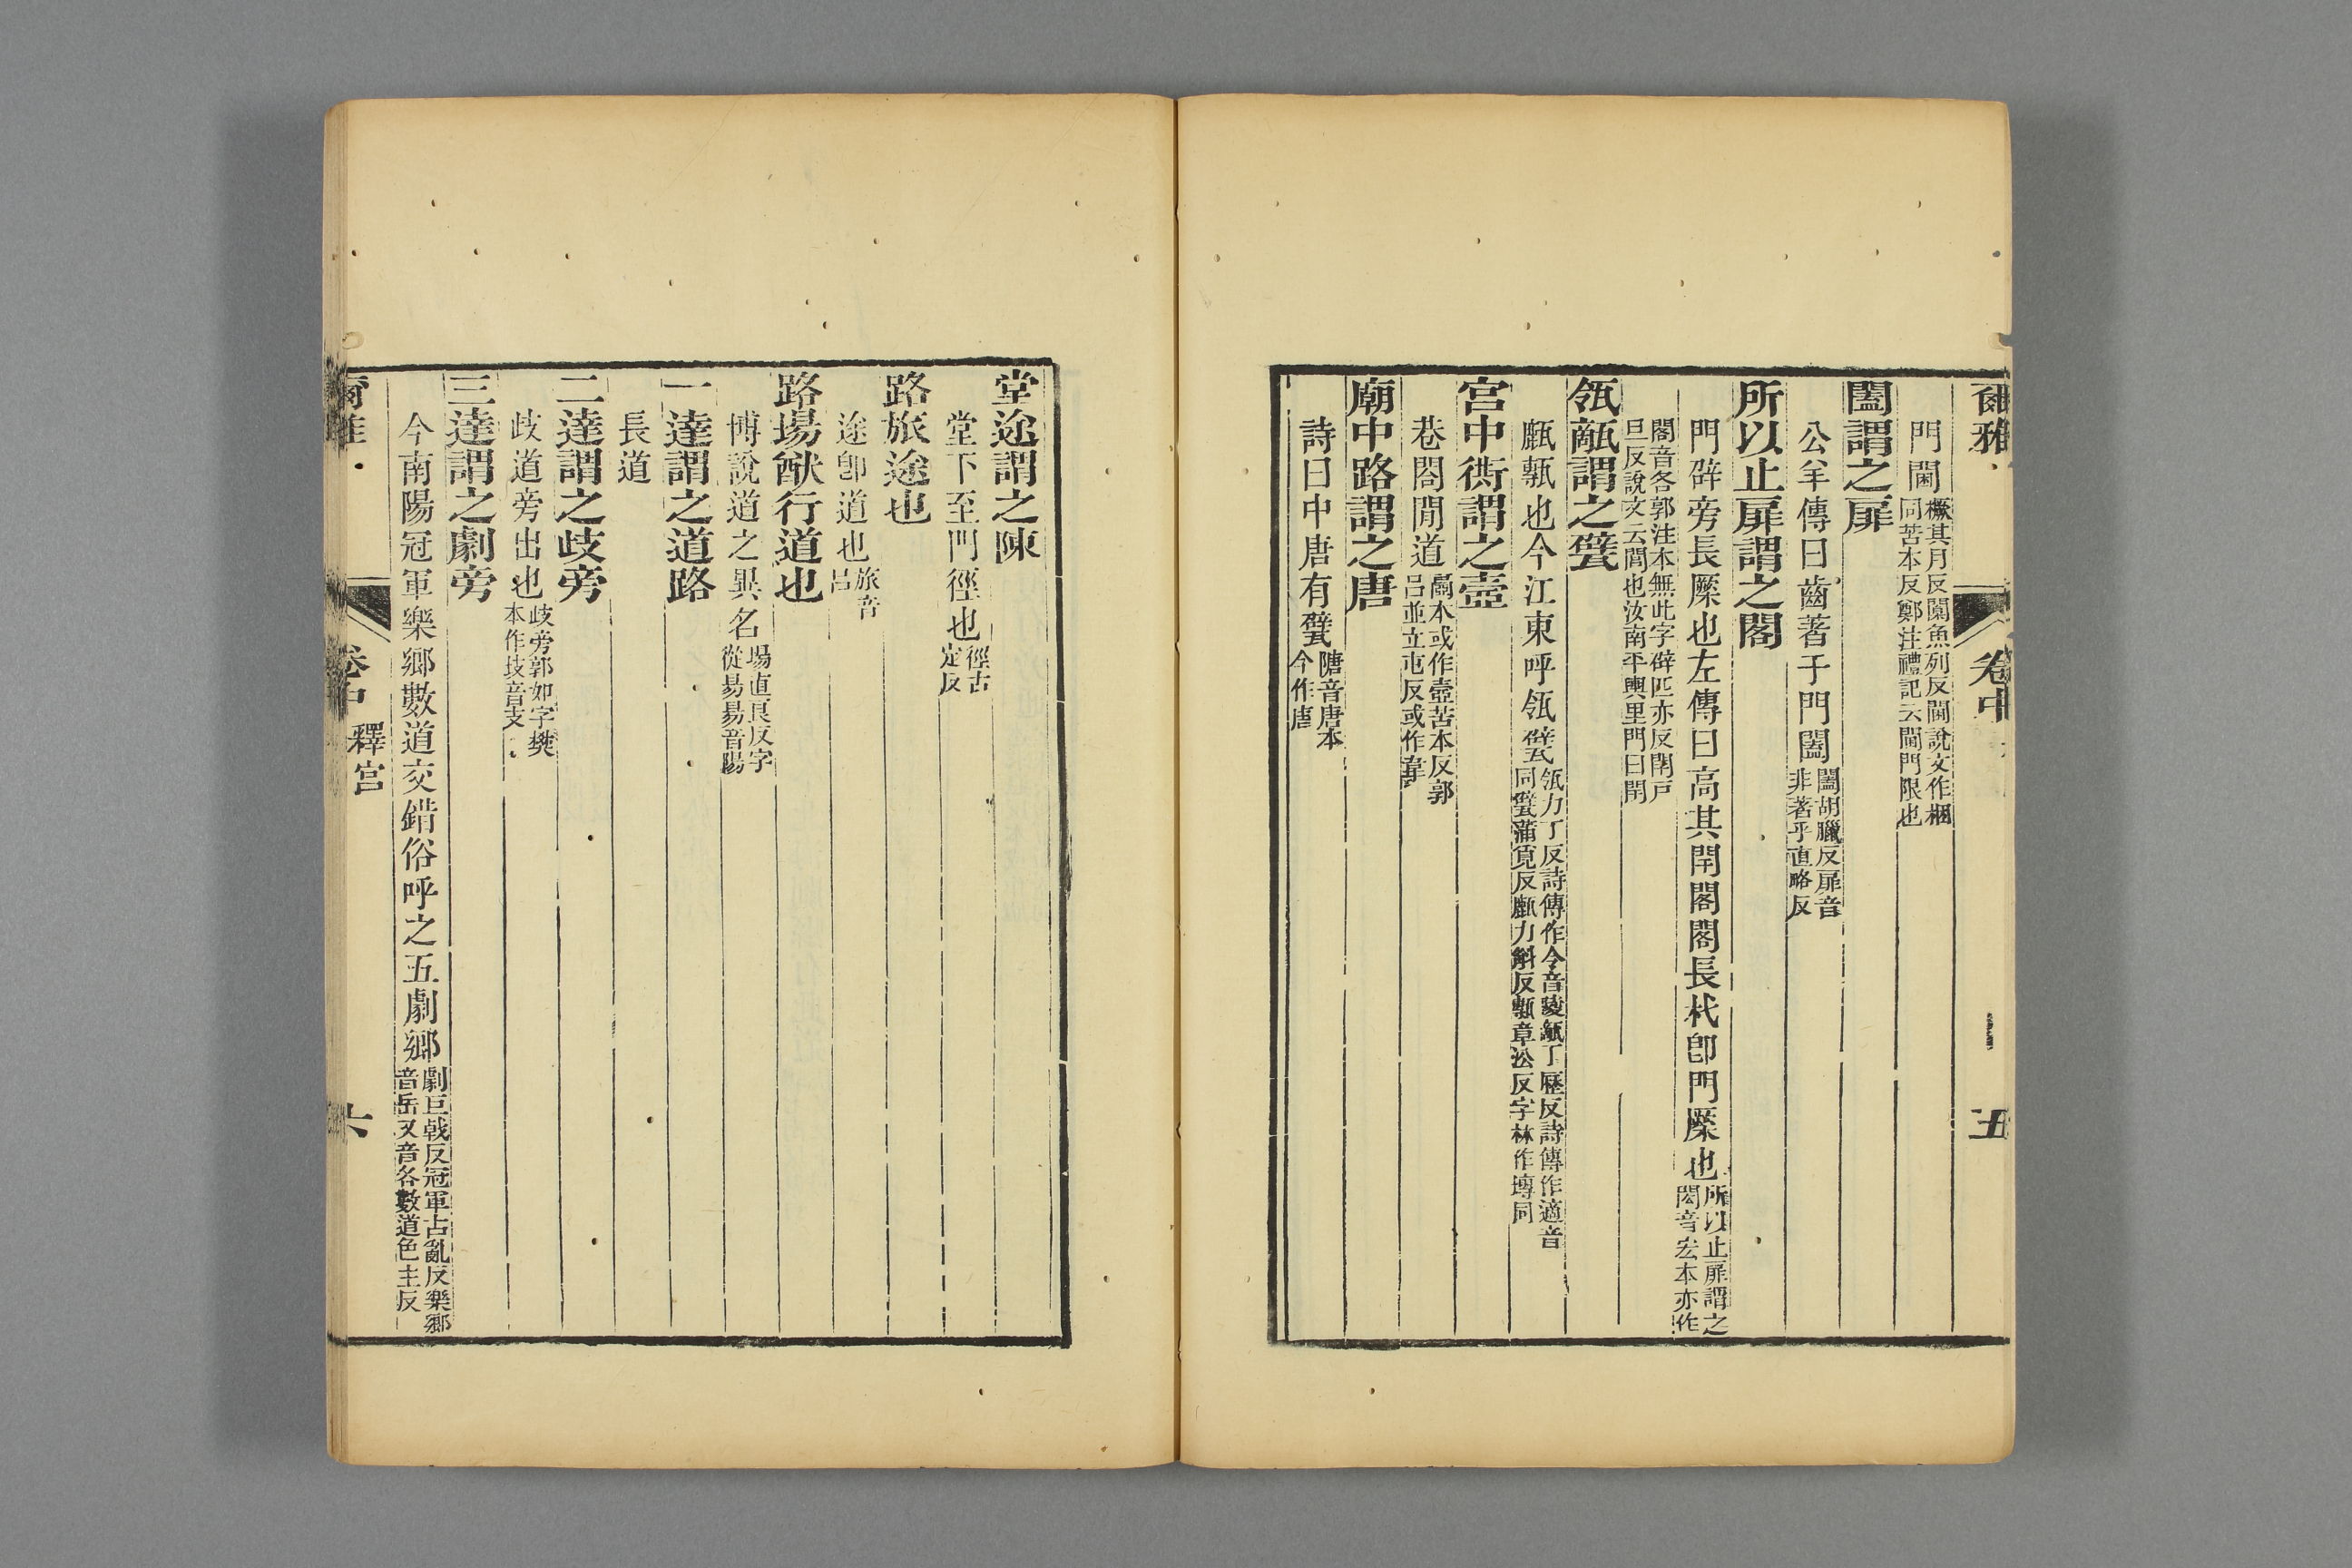 爾雅 卷中 五
門閫橛其月反闑魚列反閫說文作梱
同苦本反鄭注禮記云閫門限也
闔謂之扉
公羊傳曰齒著于門闔闔胡臘反扉音
非著乎直略反
所以止扉謂之閣
門辟旁長橜也左傳曰高其閈閣閣長杙卽門橜也所以止扉謂之
閎音宏本亦作
閣音各郭注本無此字辟匹亦反閈戸
旦反說文云閭也汝南平輿里門曰閈
瓴甋謂之甓
㼾甎也今江東呼瓴甓瓴力丁反詩傳作令音陵甋丁歷反詩傳作適音
同甓蒲覓反㼾力斛反甎章沿反字林作塼同
宮中衖謂之壼
巷閤閒道壼本或作壺苦本反郭
呂並立屯反或作
廟中路謂之唐
詩曰中唐有甓隚音唐本
今作唐
堂途謂之陳
堂下至門徑也徑古
定反
路旅途也
途卽道也旅音
呂
路場猷行道也
博說道之異名場直良反字
從昜昜音陽
一達謂之道路
長道
二達謂之歧旁
歧道旁出也歧旁郭如字樊
本作技音支
三達謂之劇旁
今南陽冠軍樂鄉數道交錯俗呼之五劇鄉劇巨戟反冠軍古亂反樂鄉
音岳又音各數道色主反
爾雅 卷中 釋宮 六